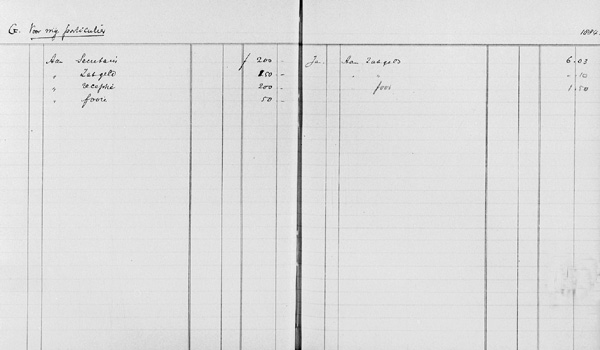 G. Voor mij particulier
1890.
Aan Secretaris f 200 -
" Zakgeld 150 -
" receptie 200 -
" fooi 50 -
Ja. Aan Zakgeld 6.03
" " - .10
fooi 1.50